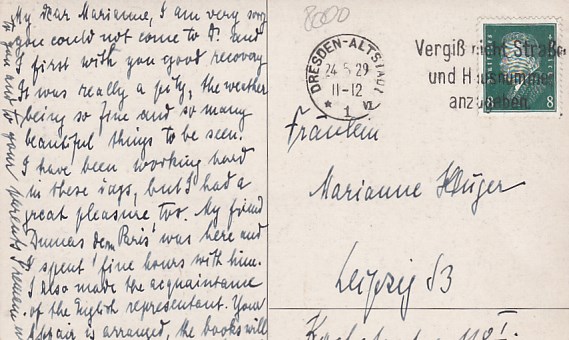 My dear Marianne, I am very sorry
you could not come to D. and
I first wish you good recovery
It was really a pity, the weather
being so fine and so many
beautiful things to be seen.
I have been working hard
in these days, but I had a
great pleasure too. My friend
from Paris was here and
I spent fine hours with him.
I also made the acquaintance
of the English representant. Your
affair is arranged, the books will
to you and to your parents
8000
DRESDEN-ALTSTADT
24.5.29
11-12
* 1
Vergiß nicht Straße
und Hausnummer
anzugeben
8 8
Fräulein
Marianne Klüger
Leipzig S3